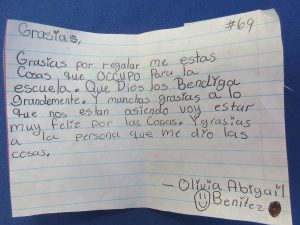 #69
Grasias,
Grasias por regalar me estas
Cosas que OCCUPO Para la
escuela. Que Dios los Bendiga
grandemente. Y munchas grasias a lo
que nos estan asiendo voy estar
muy feliz por las Cosas. Y grasias
a la persona que me dio las
cosas.
— Olivia Abigail
Benitez